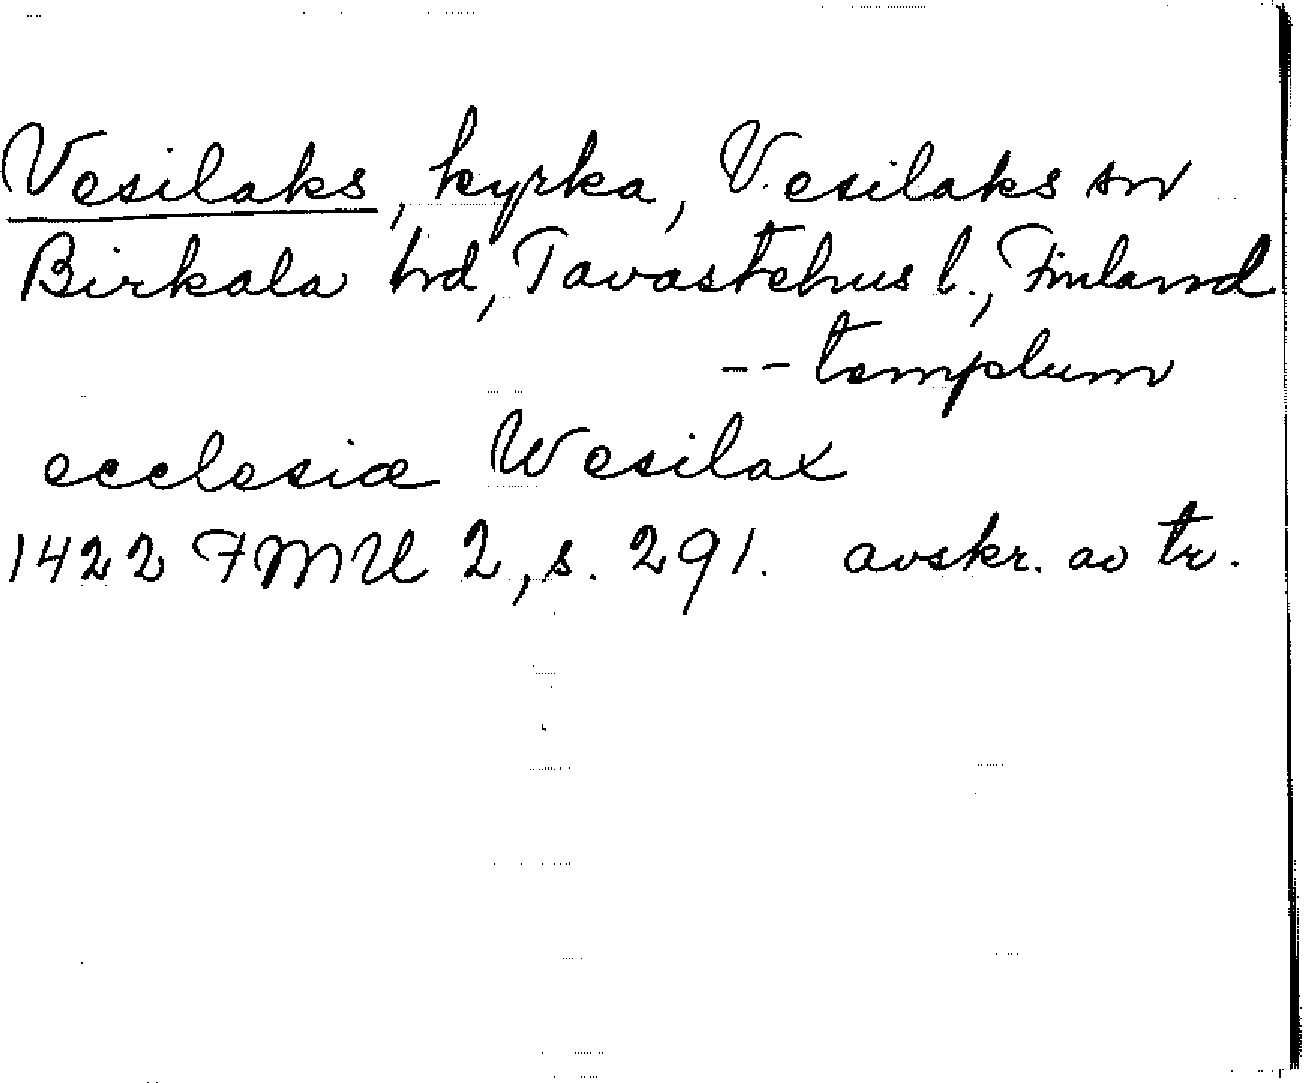 Vesilaks, kyrka, Vesilaks sn
Birkala hd, Tavastehus l., Finland
-- templum
ecclesiæ Wesilax
1422 FMU 2, s. 291. avskr. av tr.